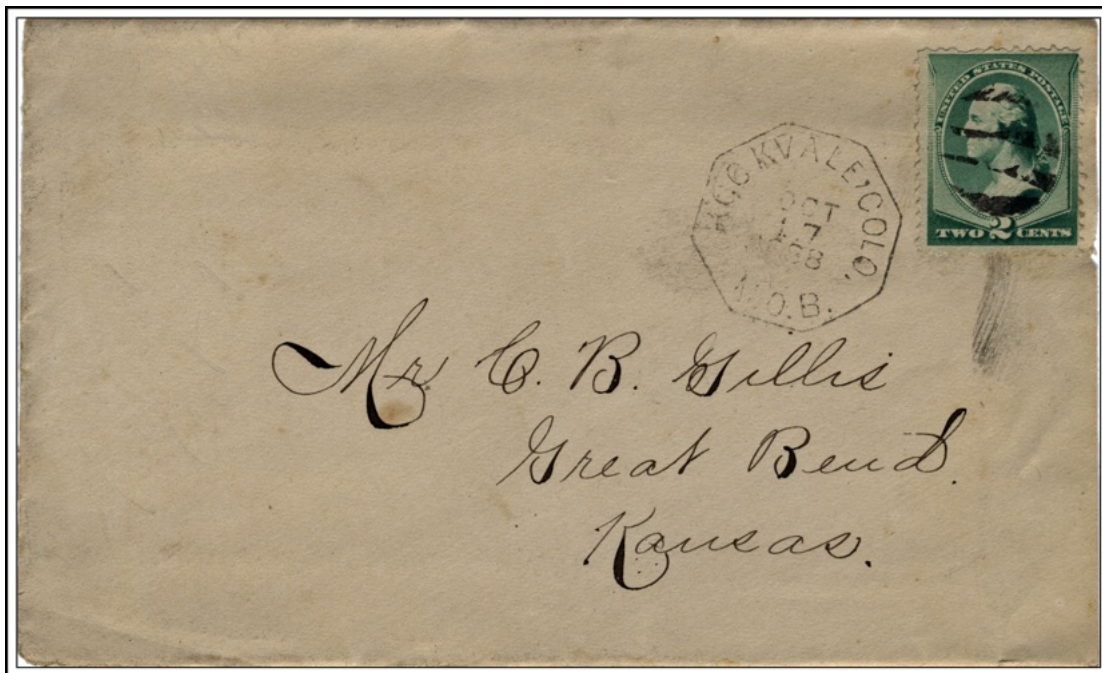 UNITED STATES POSTAGE
TWO 2 CENTS
ROCKVALE, COLO.
OCT
M.O.B.
Mr C. B. Gillis
Great Bend.
Kansas.